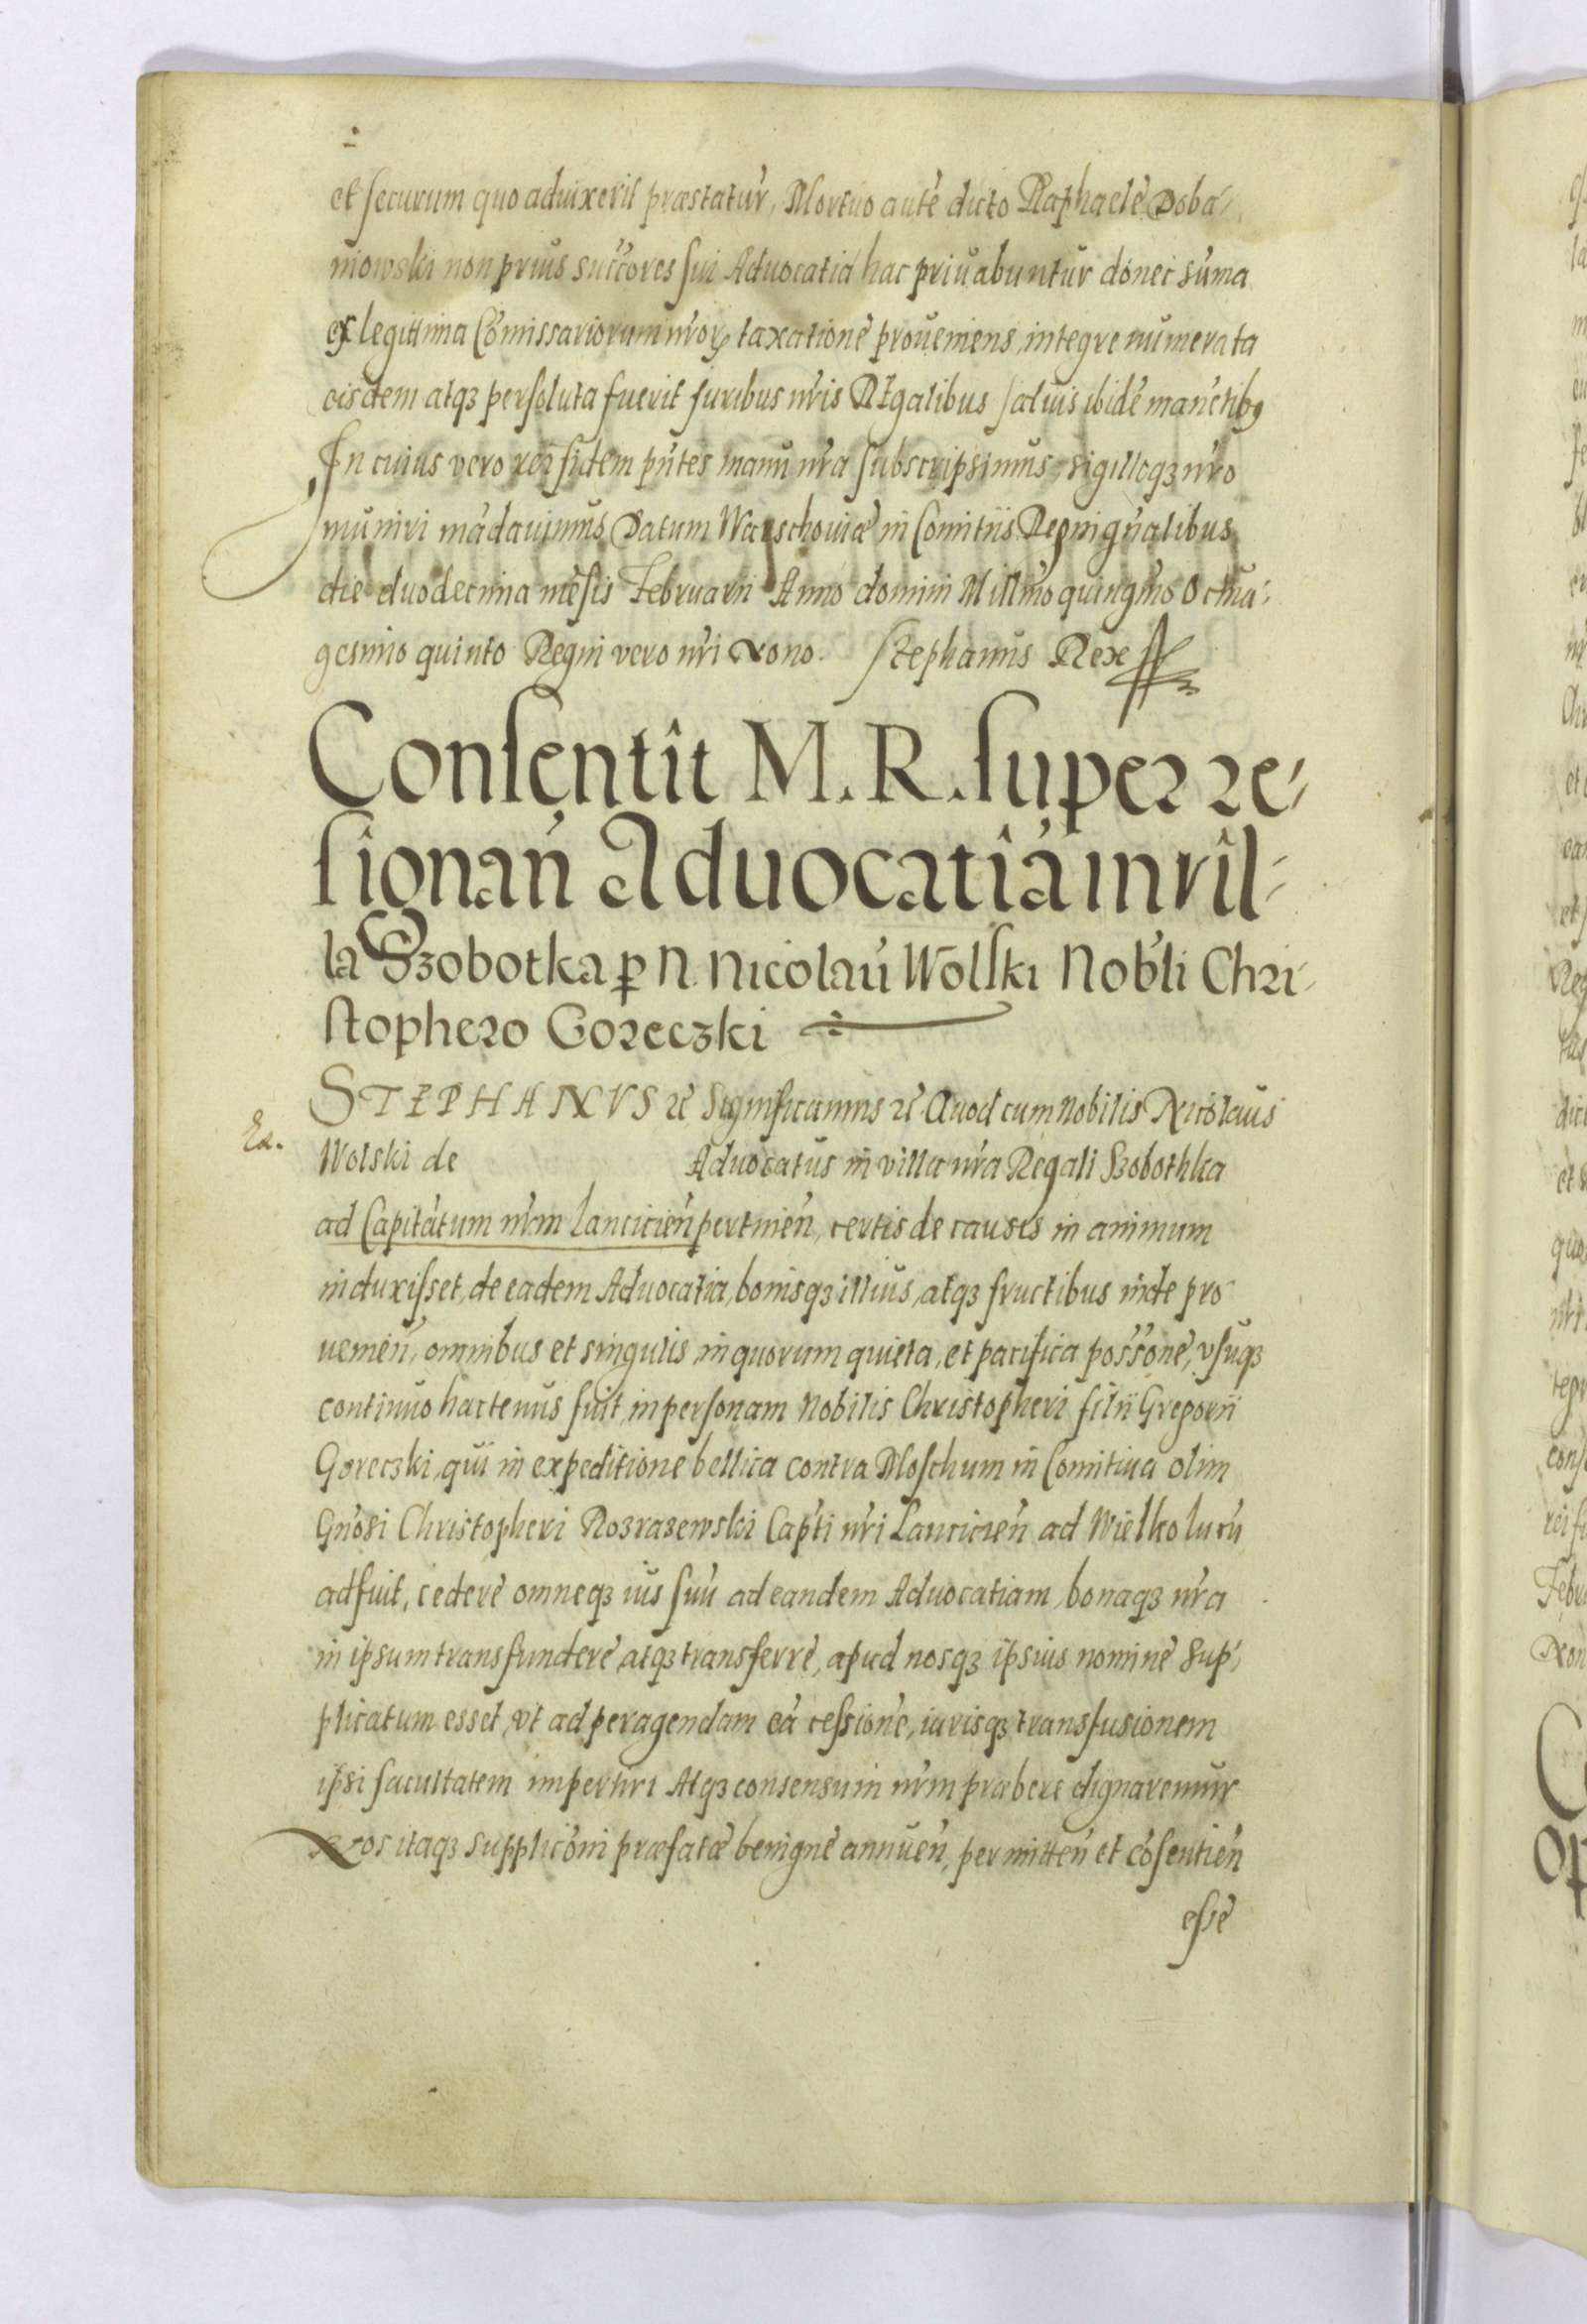 et securum quo aduixerit præstatur, Mortuo autē dicto Raphaelē Doba-
niowski non prius succ̃ores sui Aduocatia hac priuabuntur donec sum̃a
ex legittima Com̃issariorum nr̃orꝫ taxatione proueniens, integre numerata
eisdem atqꝫ persoluta fuerit Iuribus nr̃is Regalibus saluis ibidē manẽtibꝰ
In cuius vero rei fidem pñtes manu nr̃a subscripsimus, sigilloqꝫ nr̃o
muniri mãdauimus Datum Warschouiæ in Comitiis Regni gñalibus
die duodecima mẽsis Februarii Anno domini Millm̃o quingm̃o Octua-
gesimo quinto Regni vero nr̃i Nono. Stephanus Rex
Consentit M. R. super re-
sionañ Aduocatiã in vil-
la Szobotka ꝑ N. Nicolaũ Wolski Nob̃li Chri-
stophero Goreczki
STEPHANVS ꝛc̃ Significamus ꝛc̃ Quod cum Nobilis Nicolaus
Ex.
Wolski de Aduocatus in villa nr̃a Regali Szobothka
ad Capitãtum nr̃m Lancicieñ pertineñ, certis de causis in animum
induxisset, de eadem Aduocatia, bonisqꝫ illius, atqꝫ fructibus inde pro
uenieñ, omnibus et singulis, in quorum quieta, et pacifica poss̃one, vsuqꝫ
continuo hactenus fuit, in personam Nobilis Christopheri filii Gregorii
Goreczki, qui in expeditione bellica contra Moschum in Comitiua olim
Gñosi Christopheri Rozrazewski Cap̃ti nr̃i Lancicieñ ad Wielkolucũ
adfuit, cedere omneqꝫ ius suũ ad eandem Aduocatiam, bonaqꝫ nr̃a
in ipsum transfundere, atqꝫ transferre, apud nosqꝫ ipsius nomine Sup-
plicatum esset, vt ad peragendam eã cessione, iurisqꝫ transfusionem
ipsi facultatem impertiri Atqꝫ consensum nr̃m præbere dignaremur
Nos itaqꝫ supplic̃oni præfatæ benigne annueñ, permitteñ et cõsentieñ
esse